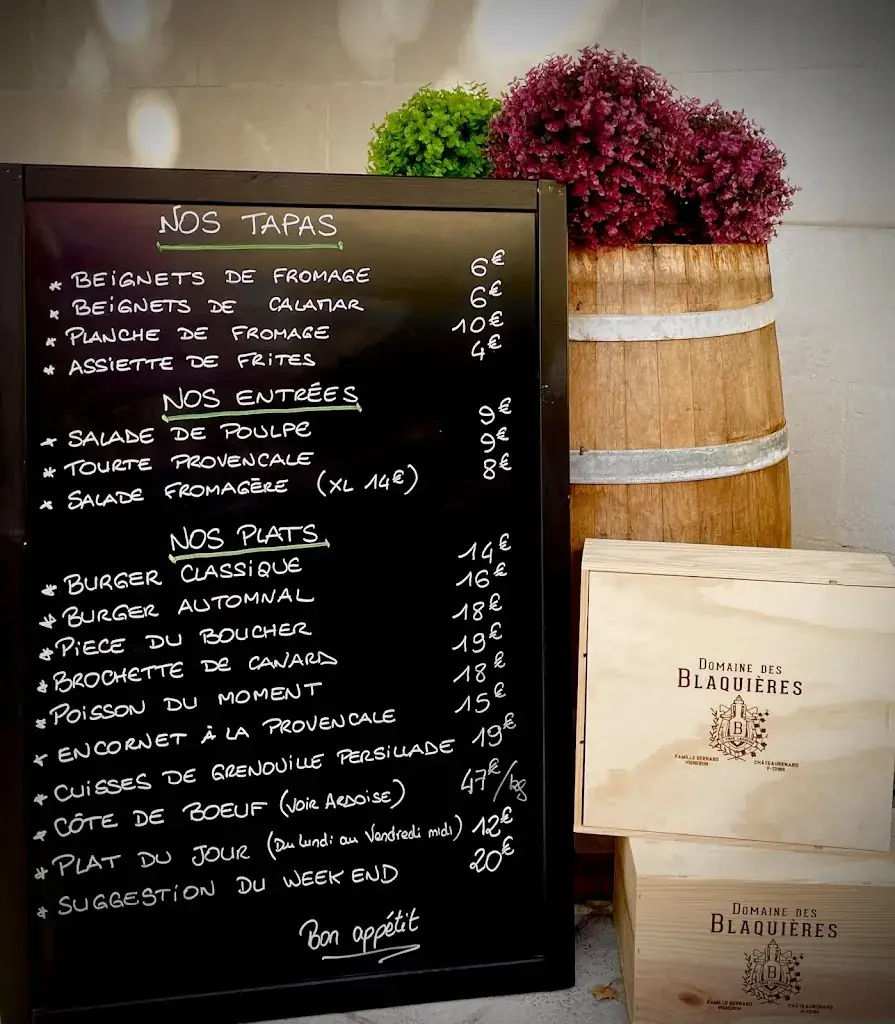 NOS TAPAS
* BEIGNETS DE FROMAGE 6€
* BEIGNETS DE CALAMAR 6€
* PLANCHE DE FROMAGE 10€
* ASSIETTE DE FRITES 4€
NOS ENTRÉES
* SALADE DE POULPE 9€
* TOURTE PROVENCALE 9€
* SALADE FROMAGÈRE (XL 14€) 8€
NOS PLATS
* BURGER CLASSIQUE 14€
* BURGER AUTOMNAL 16€
* PIECE DU BOUCHER 18€
* BROCHETTE DE CANARD 19€
* POISSON DU MOMENT 18€
* ENCORNET À LA PROVENCALE 15€
* CUISSES DE GRENOUILLE PERSILLADE 19€
* CÔTE DE BOEUF (VOIR ARDOISE) 47€/kg
* PLAT DU JOUR (Du lundi au Vendredi midi) 12€
* SUGGESTION DU WEEK END 20€
Bon appétit
DOMAINE DES
BLAQUIÈRES
B
FAMILLE BERNARD CHÂTEAURENARD
VIGNERON F-13160
DOMAINE DES
BLAQUIÈRES
B
FAMILLE BERNARD CHÂTEAURENARD
VIGNERON F-13160